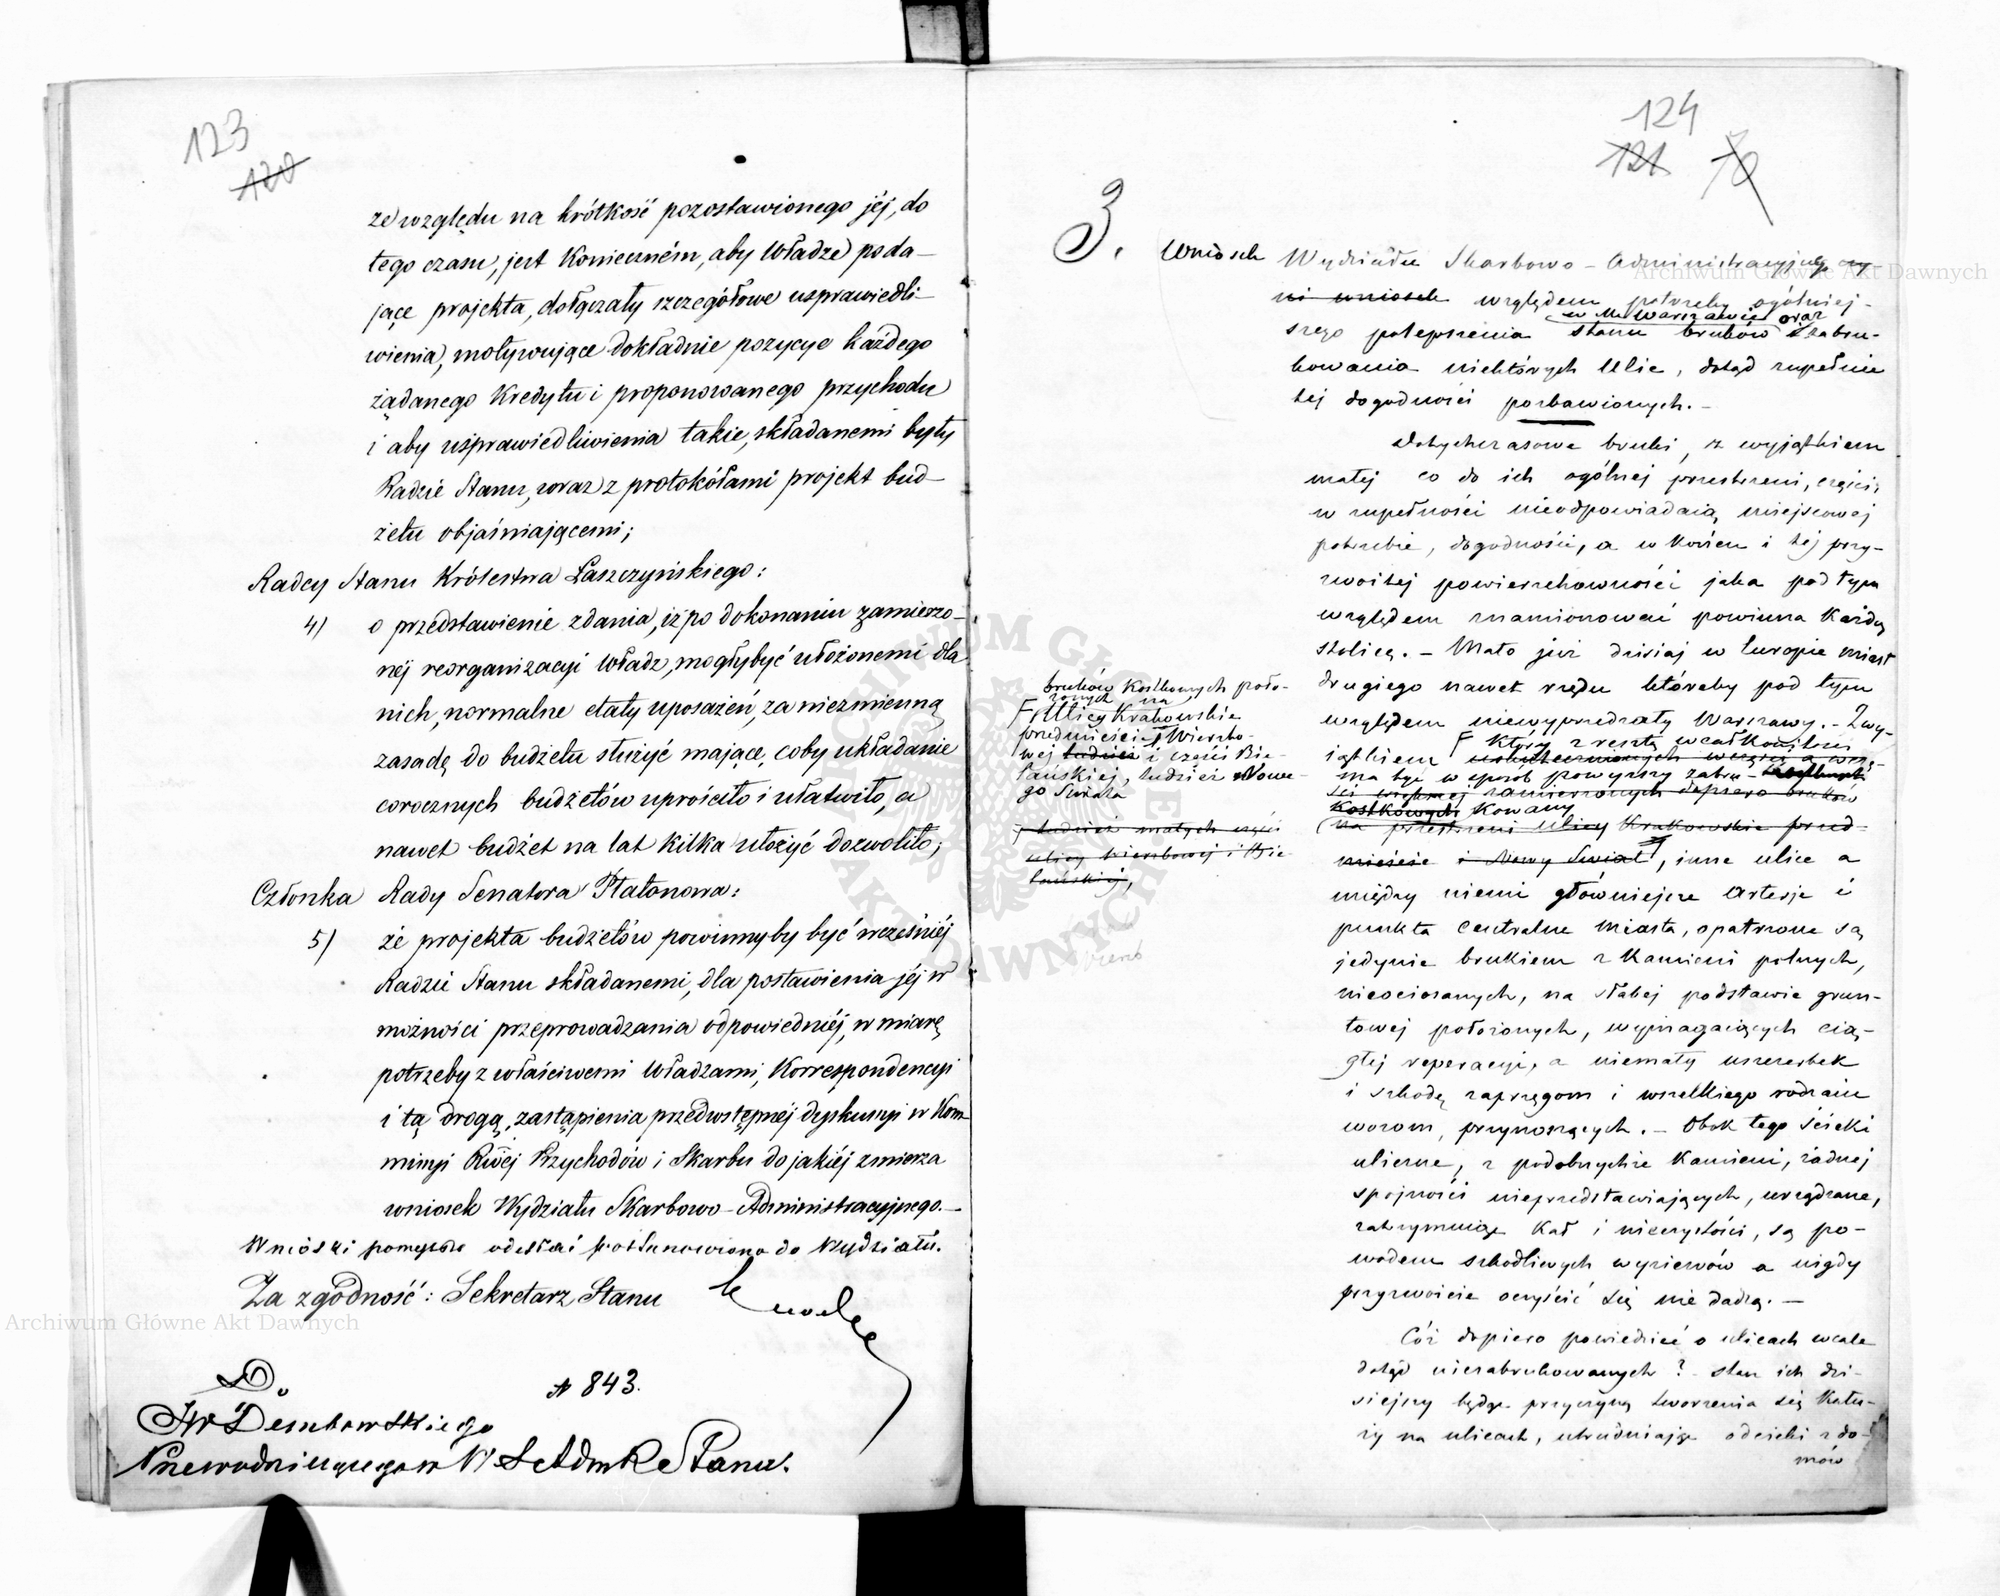 123
120
ze względu na krótkość pozostawionego jéj, do
tego czasu, jest konieczném, aby Władze poda-
jące projekta, dołączały szczegółowe usprawiedli-
wienia, motywujące dokładnie pozycye każdego
żądanego kredytu i proponowanego przychodu
i aby usprawiedliwienia takie, składanemi były
Radzie Stanu, wraz z protokółami projekt bud-
żetu objaśniającemi;
Radcy Stanu Królestwa Łaszczyńskiego:
4) o przedstawienie zdania, iż po dokonaniu zamierzo-
néj reorganizacyi Władz, mogłyby być ułożonemi dla
nich, normalne etaty uposażeń, za niezmienną
zasadę do budżetu służyć mające, coby układanie
corocznych budżetów uprościło i ułatwiło, a
nawet budżet na lat kilka ułożyć dozwoliło;
Członka Rady Senatora Płatonowa:
5) że projekta budżetów powinnyby być wcześniéj
Radzie Stanu składanemi, dla postawienia jéj w
możności przeprowadzania odpowiedniéj, w miarę
potrzeby z właściwemi Władzami, korrespondencyi
i tą drogą, zastąpienia przedwstępnéj dyskussyi w Kom-
missyi Rwéj Przychodów i Skarbu do jakiéj zmierza
wniosek Wydziału Skarbowo-Administracyjnego.-
Wnioski pomyższe odesłać postanowiono do Wydziału.
Za zgodność: Sekretarz Stanu
Do
№ 843.
JW Dembowskiego
Przewodniczącego w W S Adm R Stanu.
124
121 70
3. Wniosek Wydziału Skarbowo-Administracyjnego
ni wniosek względem potrzeby ogólniej-
w M. Warszawie oraz
szego polepszenia stanu bruków i zabru-
kowania niektórych ulic, dotąd zupełnie
tej dogodności pozbawionych.-
Dotychczasowe bruki, z wyjątkiem
małej co do ich ogólnej przestrzeni, części,
w zupełności nieodpowiadaią miejscowej
potrzebie, dogodności, a w końcu i tej przy-
zwoitej powierzchowności jaka pod tym
względem znamionować powinna każdą
stolicę.- Mało już dzisiaj w Europie miast
drugiego nawet rzędu któreby pod tym
względem niewyprzedzały Warszawy.- Z wy-
bruków kostkowych poło-
żonych na
Ulicy Krakowskie
przedmieście, Wierzbo-
wej tudzież i części Bie-
lańskiej, tudzież Nowe-
go Świata
tudzież małych części
ulicy Wierzbowej i Bie-
lańskiej,
który z resztą w całkowitości
iątkiem uskutecznionych w części a wię-
ma być w sposób powyższy zabru-
ści większej zamierzonych dopiero bruków
kostkowych kowany
na przestrzeni ulicy Krakowskie przed-
mieście i Nowy Świat, inne ulice a
między niemi główniejsze arterje i
punkta centralne miasta, opatrzone są
jedynie brukiem z kamieni polnych,
nieociosanych, na słabej podstawie grun-
towej położonych, wymagaiących cią-
głej reperacyi, a niemały uszczerbek
i szkodę zaprzęgom i wszelkiego rodzaiu
wozom, przynoszących.- Obok tego ścieki
uliczne, z podobnychże kamieni, żadnej
spójności nieprzedstawiających, urządzone,
zatrzymując kał i nieczystości, są po-
wodem szkodliwych wyziewów a nigdy
przyzwoicie oczyścić się nie dadzą.-
Cóż dopiero powiedzieć o ulicach wcale
dotąd niezabrukowanych? Stan ich dzi-
siejszy będąc przyczyną tworzenia się kału-
ży na ulicach, utrudniając odcieki z do-
mów
Archiwum Główne Akt Dawnych
Archiwum Główne Akt Dawnych
ARCHIWUM GŁÓWNE AKT DAWNYCH